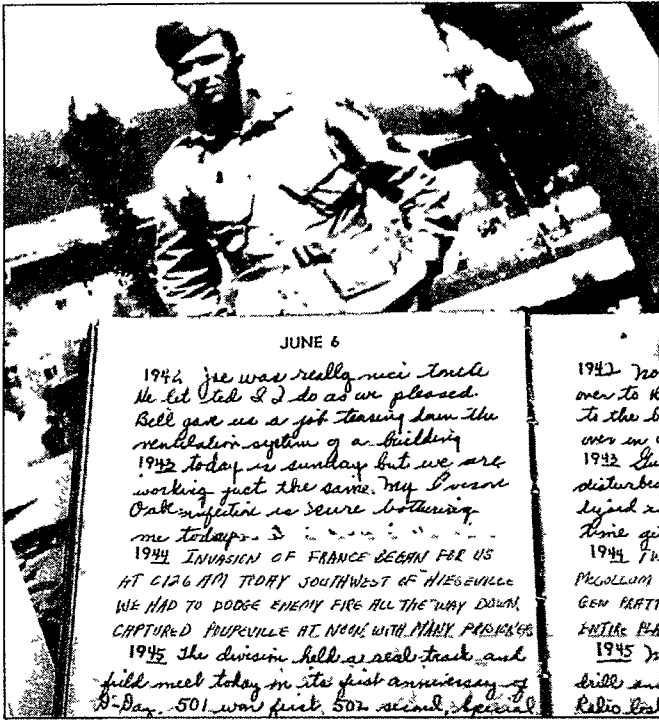 JUNE 6
1942 Joe was really nice
He let Ted & I do as we pleased.
Bell gave us a job tearing down the
ventilation system of a building
1943 today is sunday but we are
working just the same. My Poison
Oak infection is sure bothering
me today.
1944 INVASION OF FRANCE BEGAN FOR US
AT 0126 AM TODAY SOUTHWEST OF HIESEVILLE
WE HAD TO DODGE ENEMY FIRE ALL THE WAY DOWN.
CAPTURED POUPEVILLE AT NOON WITH MANY PRISONERS
1945 The division held a real track and
field meet today on its first anniversary of
D-Day. 501 won first, 502 second, Special
1942
over to
to the
over in
1943
disturbed
time
1944
MCCOLLUM
GEN PRATT
ENTIRE
1945
drill
Radio